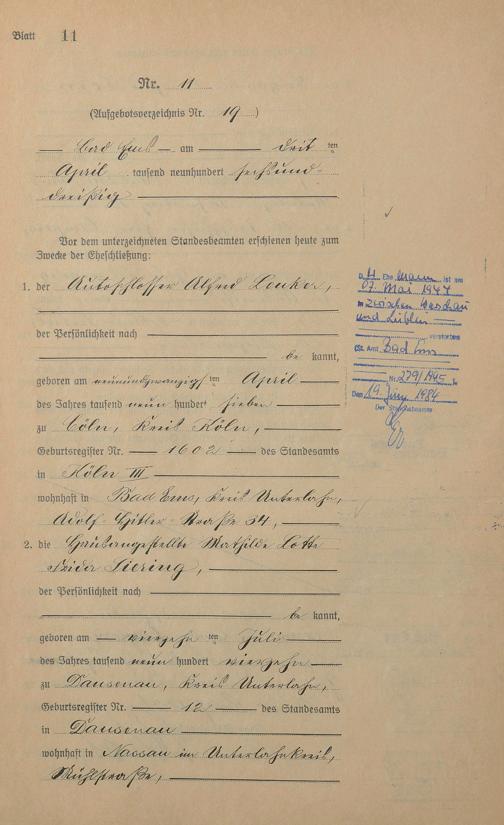 Blatt 11
Nr. 11
(Aufgebotsverzeichnis Nr. 19)
Bad Ems am drit ten
April tausend neunhundert sechsund-
dreißig
Vor dem unterzeichneten Standesbeamten erschienen heute zum
Zwecke der Eheschließung:
1. der Autoschlosser Alfred
der Persönlichkeit nach
be kannt,
geboren am neunundzwanzigs ten April
des Jahres tausend neun hundert sieben
zu Cöln, Kreis Köln,
Geburtsregister Nr. 1602 des Standesamts
in Köln III
wohnhaft in Bad Ems, Kreis Unterlahn,
Adolf-Hitler-Straße 54,
2. die Hausangestellte Mathilde Lotte
Frida Siering,
der Persönlichkeit nach
be kannt,
geboren am vierzehn ten Juli
des Jahres tausend neun hundert vierzehn
zu Dausenau, Kreis Unterlahn,
Geburtsregister Nr. 12 des Standesamts
in Dausenau
wohnhaft in Nassau im Unterlahnkreis,
Mühlstraße,
D. Ehe mann ist am
07. Mai
in zwischen Warschau
und Lublin
verstorben
(St. Amt Bad Ems
Nr. 279/1945
Den 19. Juni 1984
Der Standesbeamte